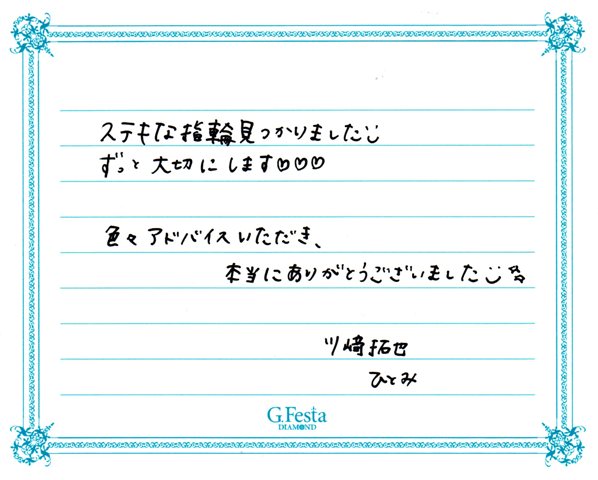 ステキな指輪見つかりました
ずっと大切にします♡♡♡
色々アドバイスいただき、
本当にありがとうございました
川崎拓也
ひとみ
G.Festa
DIAMOND